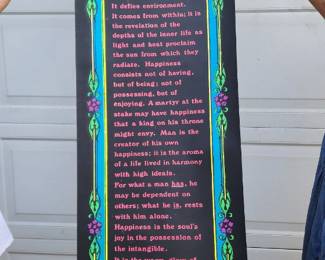 It defies environment.
It comes from within; it is
the revelation of the
depths of the inner life as
light and heat proclaim
the sun from which they
radiate. Happiness
consists not of having,
but of being; not of
possessing, but of
enjoying. A martyr at the
stake may have happiness
that a king on his throne
might envy. Man is the
creator of his own
happiness; it is the aroma
of a life lived in harmony
with high ideals.
For what a man has, he
may be dependent on
others; what he is, rests
with him alone.
Happiness is the soul's
joy in the possession of
the intangible.
It is the warm glow of